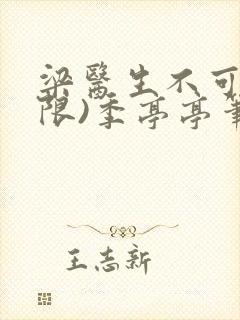 梁醫生不可
限)季亭亭筆
王志新